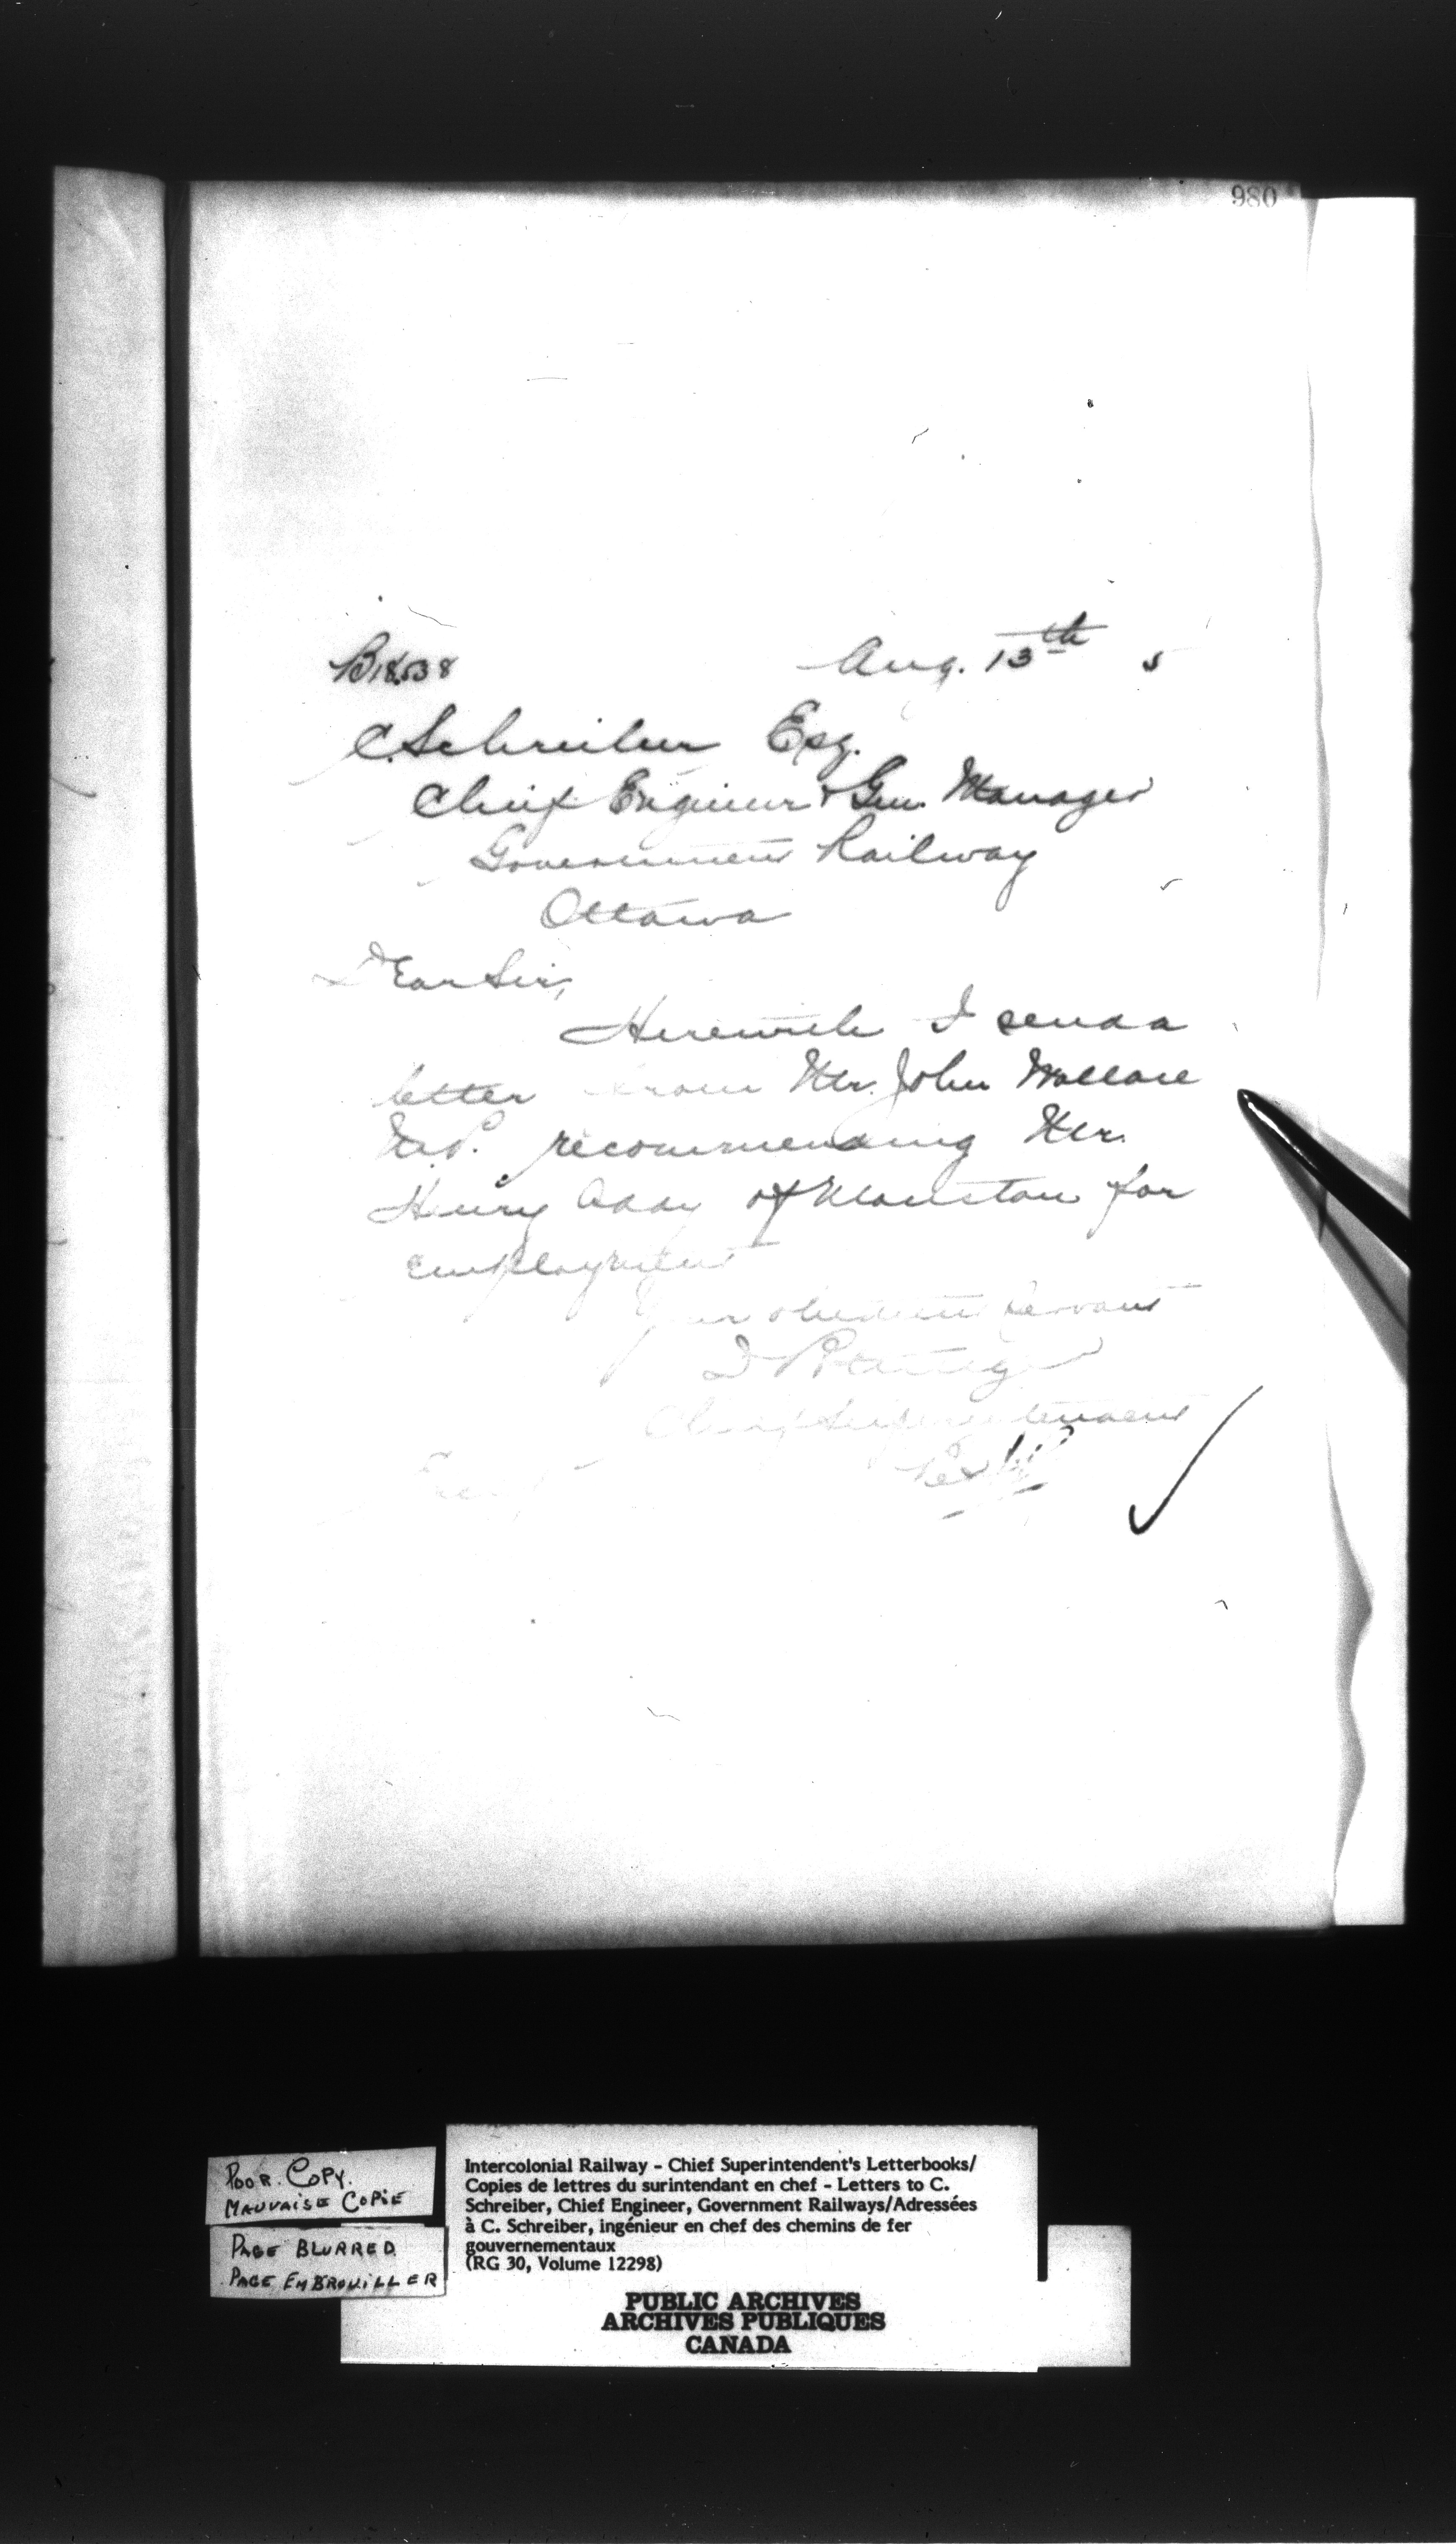 980
B18538 Aug. 13th 5
C. Schreiber Esq.
Chief Engineer & Gen. Manager
Government Railway
Ottawa
Dear Sir,
Herewith I send a
letter from Mr. John Wallace
M.P. recommending Mr.
Henry of for
employment
Your obedient Servant
D Pottinger
Chief Superintendent
Per
POOR. COPY.
MAUVAISE COPIE
PAGE BLURRED
PAGE EMBROUILLER
Intercolonial Railway - Chief Superintendent's Letterbooks/
Copies de lettres du surintendant en chef - Letters to C.
Schreiber, Chief Engineer, Government Railways/Adressées
à C. Schreiber, ingénieur en chef des chemins de fer
gouvernementaux
(RG 30, Volume 12298)
PUBLIC ARCHIVES
ARCHIVES PUBLIQUES
CANADA